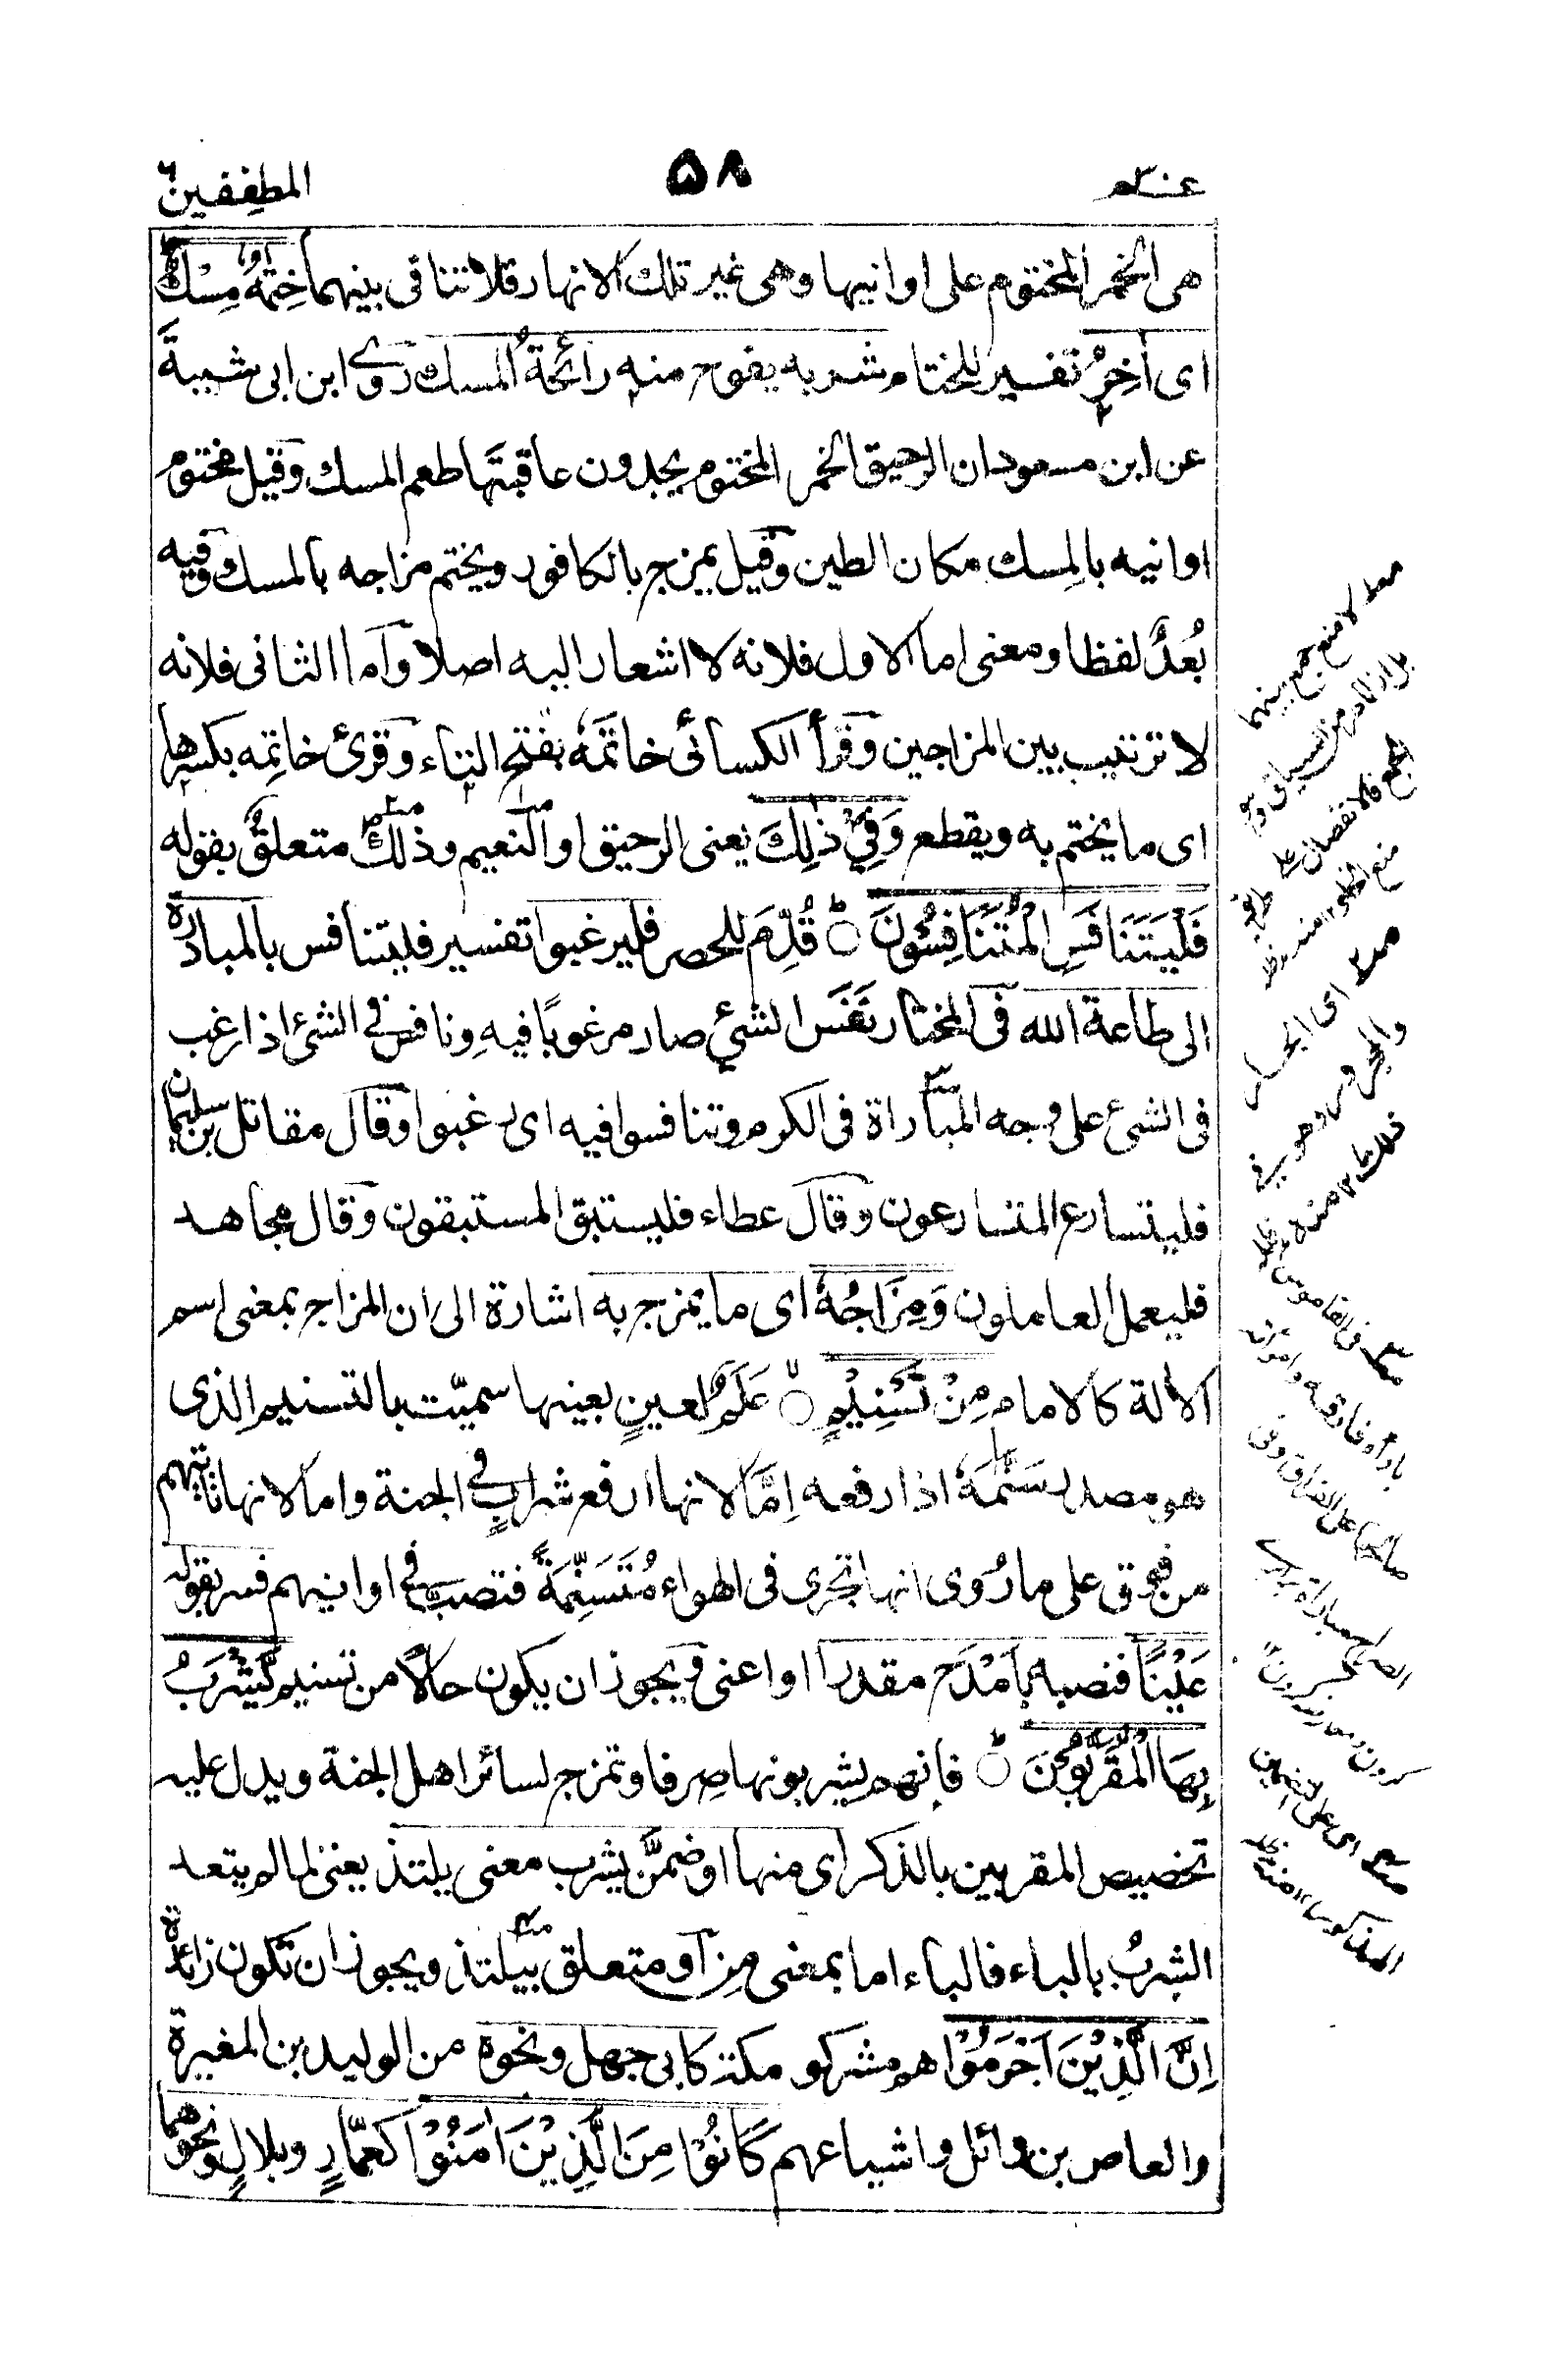 عـــم
٥٨
المطففين
هى الخمر المختوم على اوانيها وهى غير تلك الانهار فلا تنافى بينهما خِتٰمُهٗ مِسْكٌ
اى اٰخِرُ تفسير للختام شربه يفوح منه رائحةُ المسك روى ابن ابى شيبةَ
عن ابن مسعود ان الرحيق الخمر المختوم يجدون عاقبتَها طعم المسك وقيل مختوم
اوانيه بالمِسك مكان الطين وقيل يمزج بالكافور ويختم مزاجه بالمسك وفيه
بُعدٌ لفظا ومعنى اما الاول فلانه لا اشعار اليه اصلا وأما الثانى فلانه
لا ترتيب بين المزاجين وقرأ الكسائى خاتَمَهٗ بفتح التاء وقرئ خاتِمه بكسرها
اى ما يختم به ويقطع وَفِيْ ذٰلِكَ يعنى الرحيق او النعيم وذلك متعلقٌ بقوله
فَلْيَتَنَافَسِ الْمُتَنَافِسُوْنَ ۝ قُدِّمَ للحصر فليرغبوا تفسير فليتنافس بالمبادرة
الى طاعة الله فى المختار نَفَسَ الشئي صار مرغوبًا فيهِ ونافس فى الشئ اذا رغب
فى الشئ على وجه المباراة فى الكرم وتنافسوا فيه اى رغبوا وقال مقاتل بن سليمان
فليتسارع المتسارعون وقال عطاء فليستبق المستبقون وقال مجاهد
فليعمل العاملون وَمِزَاجُهٗ اى ما يمزج به اشارة الى ان المزاج بمعنى اسم
الالة كالامام مِنْ تَسْنِيْمٍ ۝ عَلَمٌ لعينٍ بعينها سميّت بالتسنيم الذى
هو مصدر سَنَّمَهٗ اذا رفعه اِمَّا لانها ارفع شرابٍ فى الجنة واما لانها تاتيهم
من فوق على ما رُوى انها تجرى فى الهواء مُتَسَنِّمَةً فتصب فى اوانيهم فسر بقوله
عَيْنًا فنصبه بأَمْدَحُ مقدرا او اعنى ويجوز ان يكون حالًا من تسنيم يَّشْرَبُ
بِهَا الْمُقَرَّبُوْنَ ۝ فانهم يشربونها صِرفا وتمزج لسائر اهل الجنة ويدل عليه
تخصيص المقربين بالذكر اى منها او ضمَّن يشرب معنى يلتذ يعنى لما لم يتعد
الشربُ بالباء فالباء اما بمعنى مِن او متعلق بيلتذ ويجوز ان تكون زائدة
اِنَّ الَّذِيْنَ اَجْرَمُوْا هم مشركو مكة كابى جهل ونحوه من الوليد بن المغيرة
والعاص بن وائل واشياعهم كَانُوْا مِنَ الَّذِيْنَ اٰمَنُوْا كعمّارٍ وبلالٍ ونحوهما
لا منع جمع بينهما
اى الجار
والمجرور